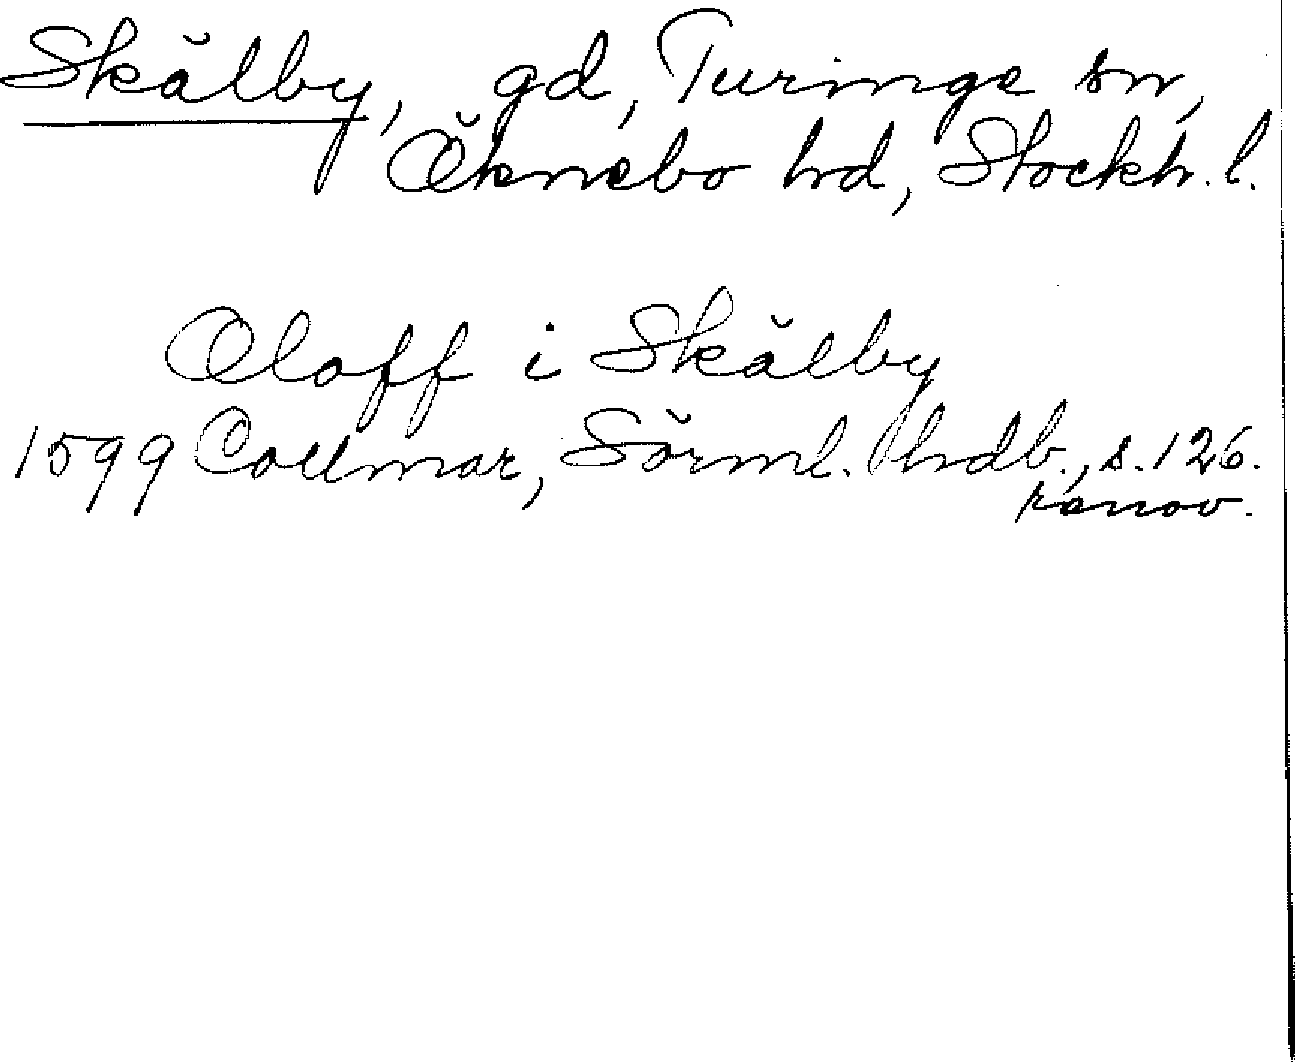 Skälby, gd, Turinge sn,
Öknebo hd, Stockh. l.
Oloff i Skälby
1599 Collmar, Sörml. hdb., s. 126.
renov.